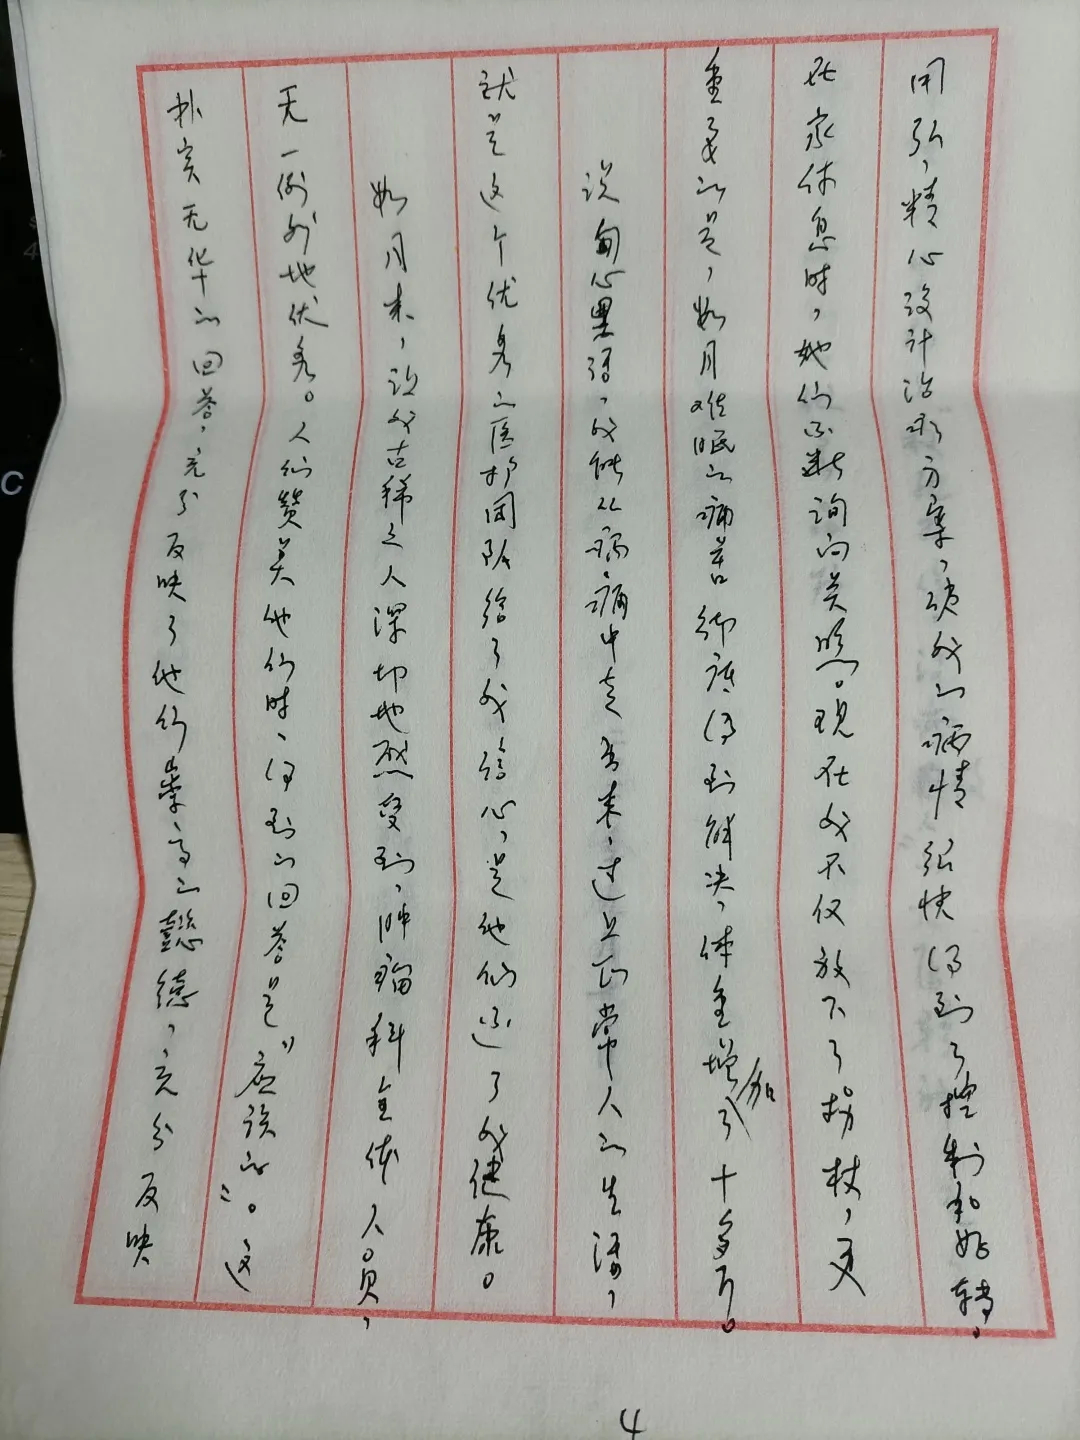 用弘，精心设计治疗方案，使我的病情很快得到了控制和好转。
在家休息时，她们不断询问关照。现在我不仅放下了拐杖，更
重要的是，数月难眠的痛苦彻底得到解决，体重增加了十多斤。
说句心里话，我能从病痛中走出来，过上正常人的生活，
就是这个优秀的医护团队给了我信心，是他们还了我健康。
数月来，让我古稀之人深切地感受到，肿瘤科全体人员，
无一例外地优秀。人们赞美他们时，得到的回答是“应该的”。这
朴实无华的回答，充分反映了他们崇高的懿德，充分反映
4